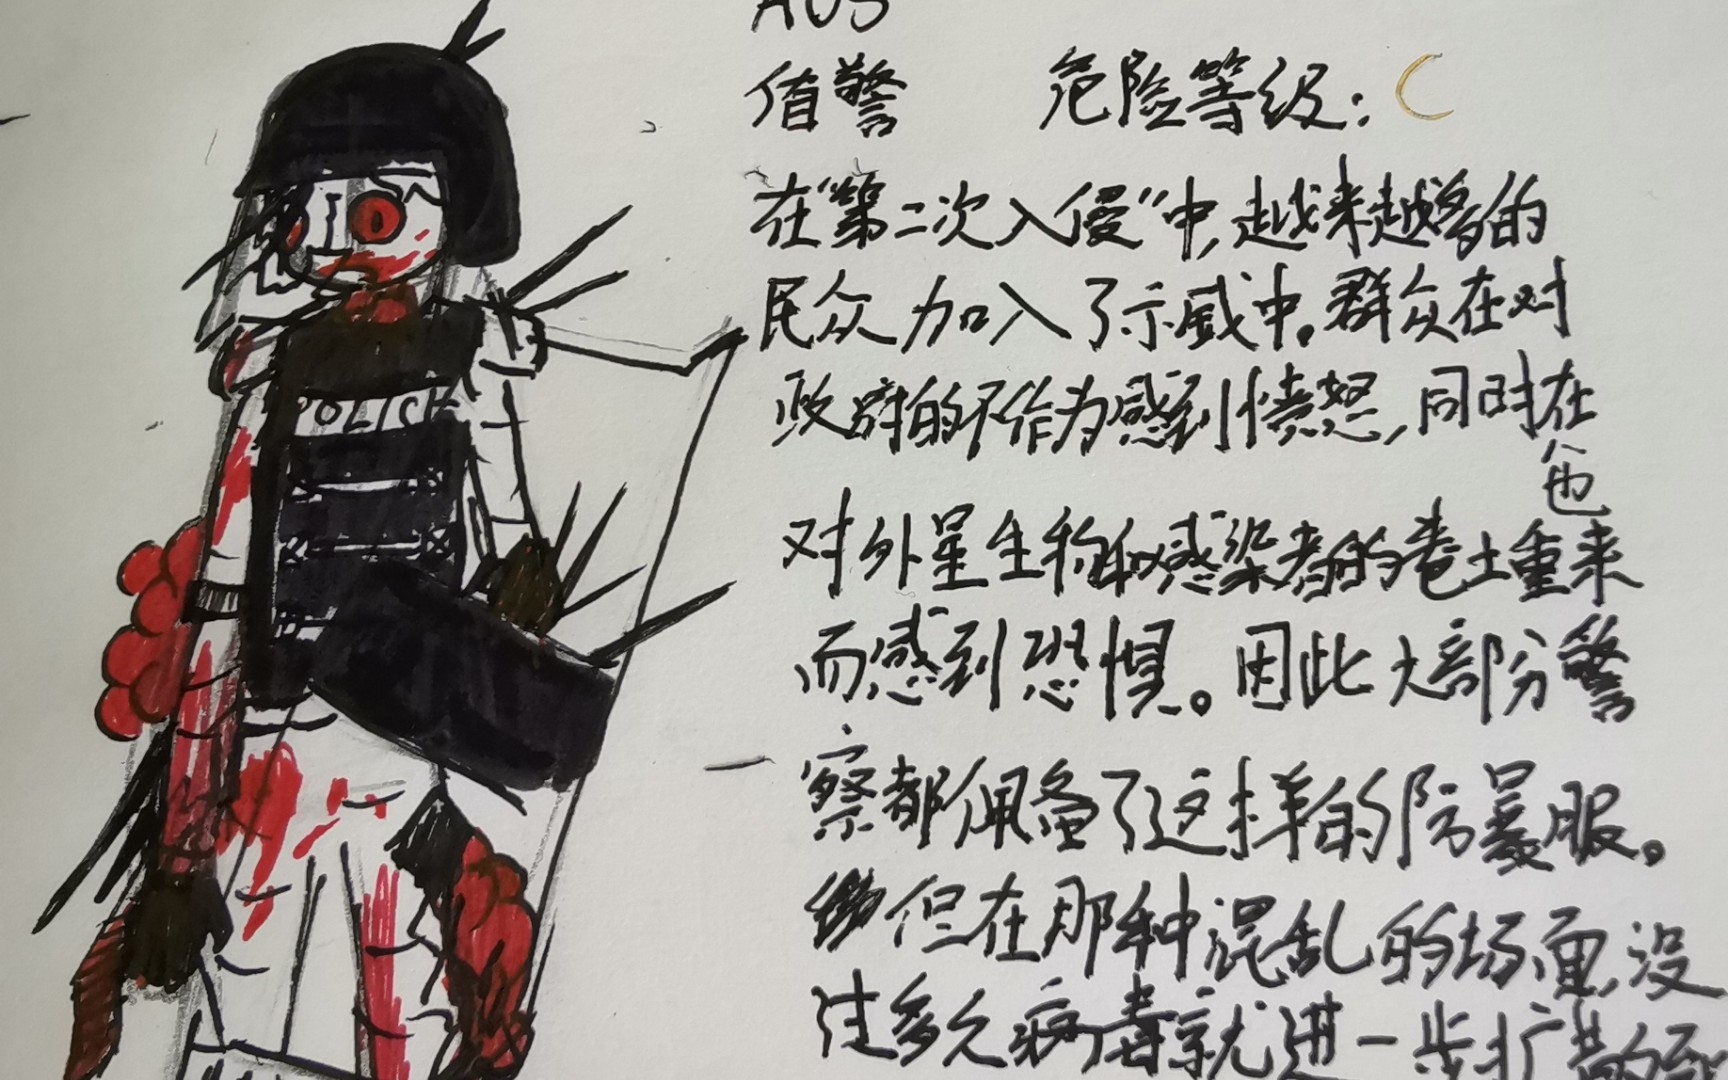 A05
警 危险等级：C
在“第二次入侵”中，越来越多的
民众加入了示威中。群众在对
政府的不作为感到愤怒，同时在
也
对外星生物和感染者的卷土重来
而感到恐惧。因此大部分警
察都佩备了这样的防暴服。
但在那种混乱的场面，没
过多久病毒就进一步扩散到
POLICE